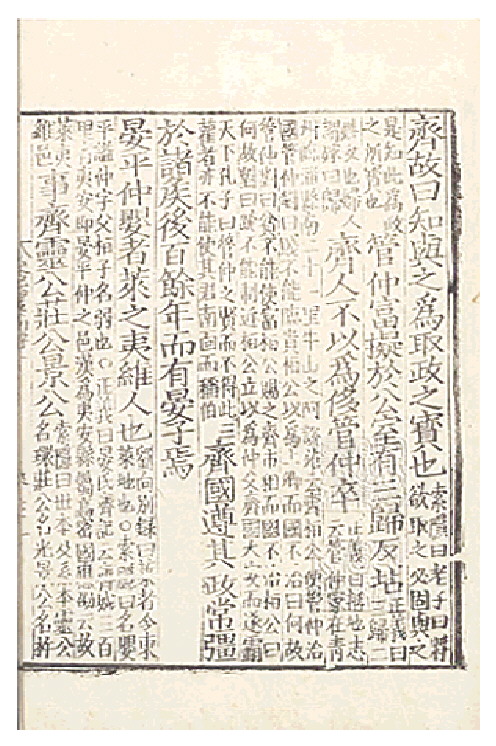 齊故曰知與之爲取政之寳也索隱曰老子曰將
欲取之必固與之
是知此爲政
之所寳也管仲富擬於公室有三歸反坫正義曰
三歸三
姓女也婦人
謂嫁曰歸齊人不以爲侈管仲卒正義曰括地志
云管仲冢在青
州臨淄縣南二十一里牛山之阿說苑云齊桓公使管仲治
國管仲對曰賤不能臨貴桓公以爲上卿而國不治曰何故
管仲對曰貧不能使富桓公賜之齊市租而國不治桓公曰
何故對曰疏不能制近桓公立以爲仲父齊國大安而遂霸
天下孔子曰管仲之賢而不得此三
權者亦不能使其君南面而稱伯齊國遵其政常彊
於諸侯後百餘年而有晏子焉
晏平仲嬰者萊之夷維人也劉向別録曰萊者今東
萊地也○索隱曰名嬰
平謚仲字父桓子名弱也○正義曰晏氏齊記云齊城三百
里有夷安即晏平仲之邑漢爲夷安縣屬高密國應劭云故
萊夷維邑事齊靈公莊公景公索隱曰世本及系本靈公
名環莊公名光景公名杵